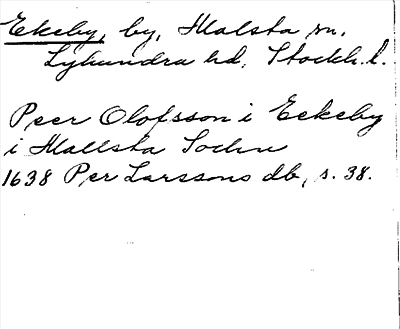 Ekeby, by, Malsta sn.
Lyhundra hd, Stockh. l.
Peer Olofsson i Eekeby
i Mallsta Sochn
1638 Per Larssons db, s. 38.